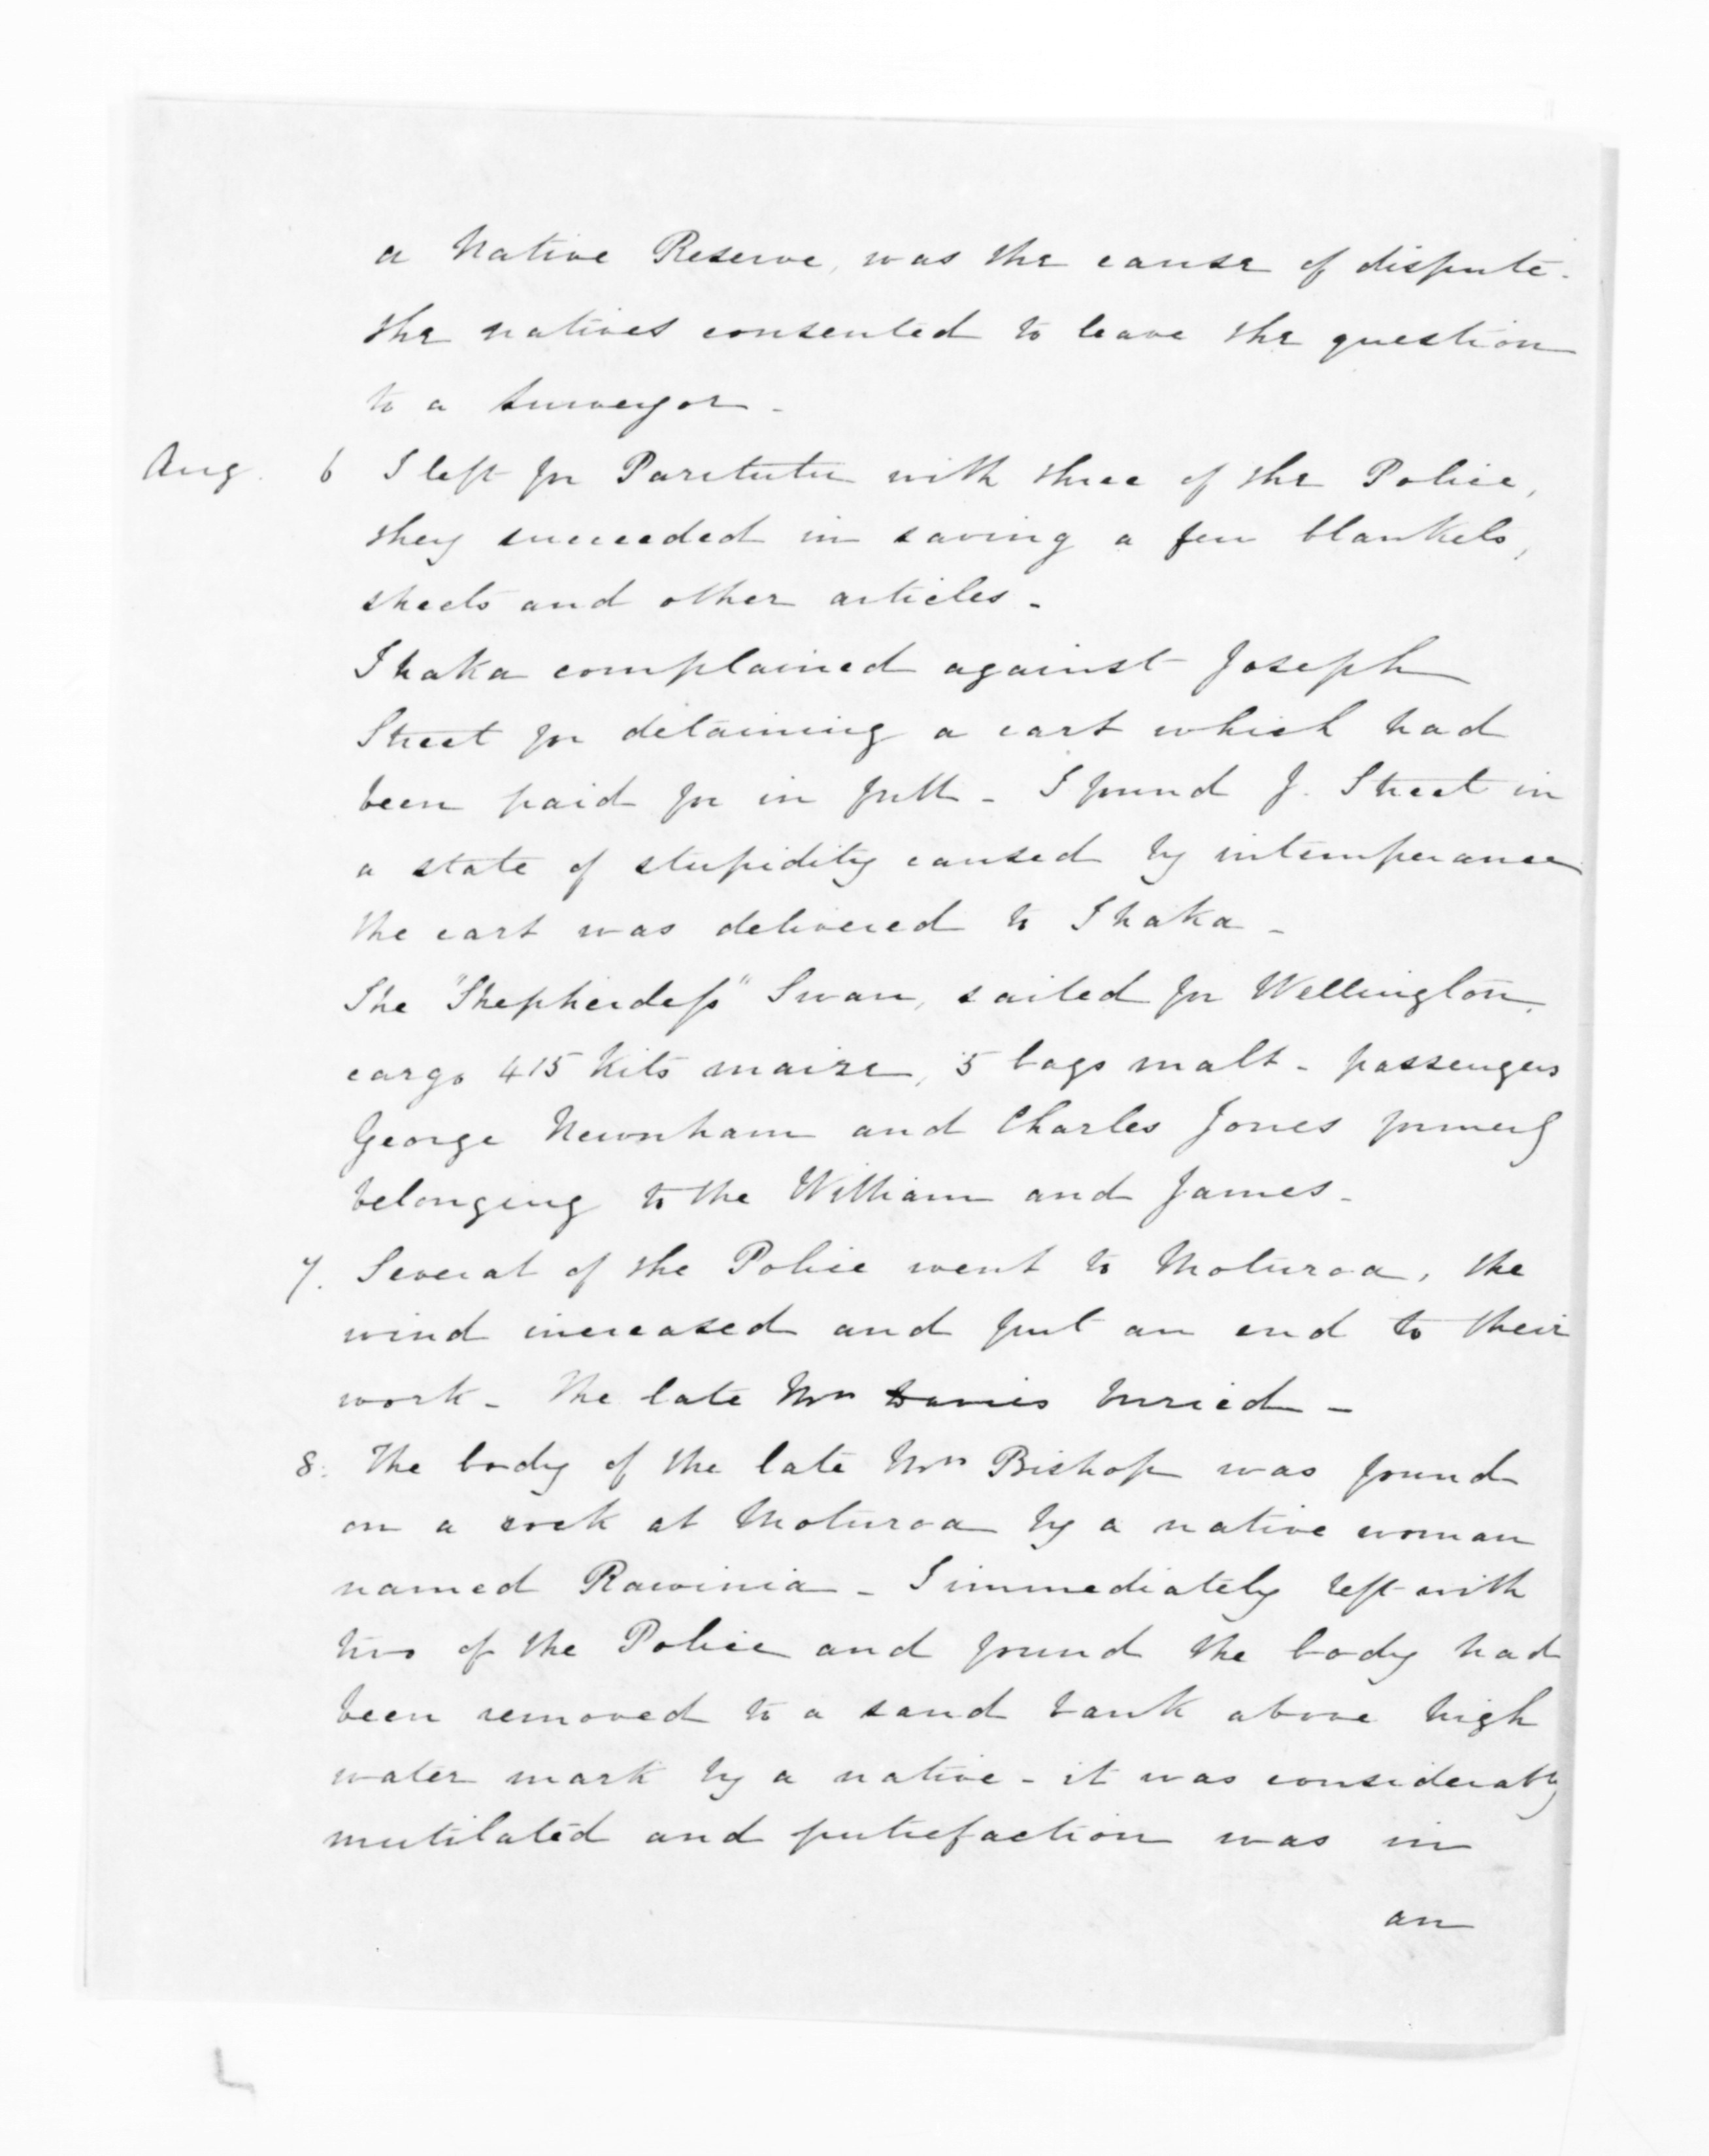 a Native Reserve, was the cause of dispute -
the natives consented to leave the question
to a Surveyor -
Aug. 6 I left for Paritutu with three of the Police,
they succeeded in saving a few blankets,
sheets and other articles -
Ihaka complained against Joseph
Street for detaining a cart which had
been paid for in full - I found J. Street in
a state of stupidity caused by intemperance
the cart was delivered to Ihaka -
The "Shepherdess" Swan, sailed for Wellington,
cargo 415 kits maize, 5 bags malt - passengers
George Newnham and Charles Jones formerly
belonging to the William and James -
7. Several of the Police went to Moturoa, the
wind increased and put an end to their
work - The late Mrs Davies buried -
8. The body of the late Mrs Bishop was found
on a rock at Moturoa by a native woman
named Rawinia - I immediately left with
two of the Police and found the body had
been removed to a sand bank above high
water mark by a native - it was considerably
mutilated and putrefaction was in
an